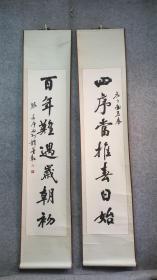 四序當推春日始
百年難遇歲朝初